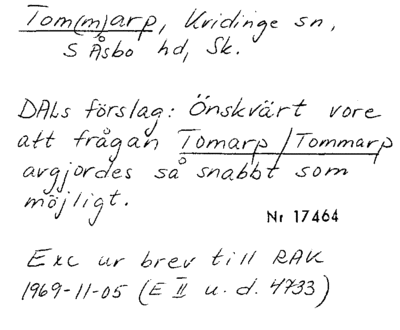 Tom(m)arp, Kvidinge sn,
S Åsbo hd, Sk.
DALs förslag: Önskvärt vore
att frågan Tomarp/Tommarp
avgjordes så snabbt som
möjligt.
Nr 17464
Exc ur brev till RAK
1969-11-05 (E II u. d. 4733)